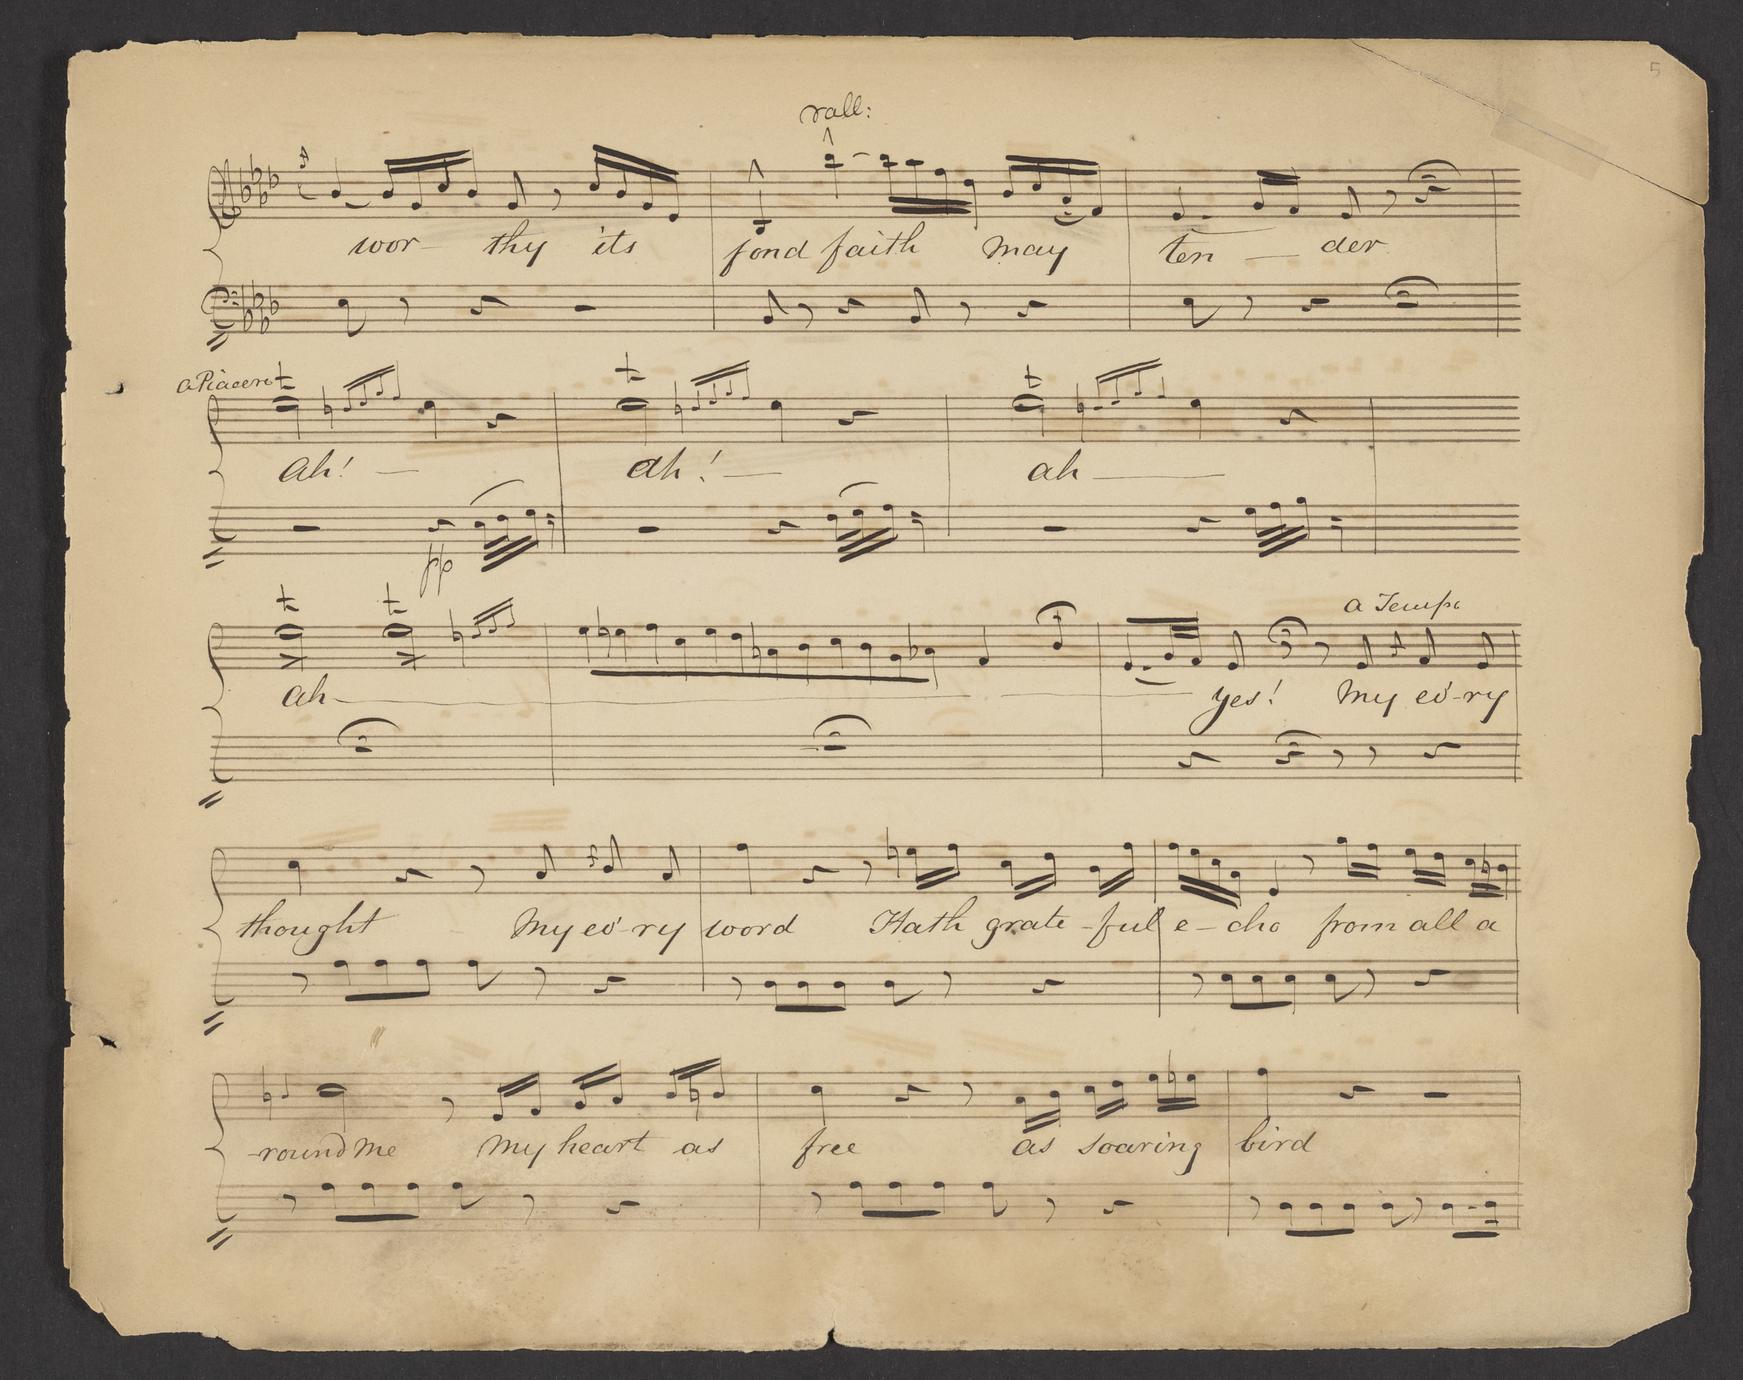 5
rall:
wor- thy its fond faith may ten — der
a Piacere
Ah! — ah! — ah —
pp
a Tempo
ah- — — yes! My ev'-ry
thought My ev'-ry word Hath grate-ful e-cho from all a
-round me My heart as free as soaring bird